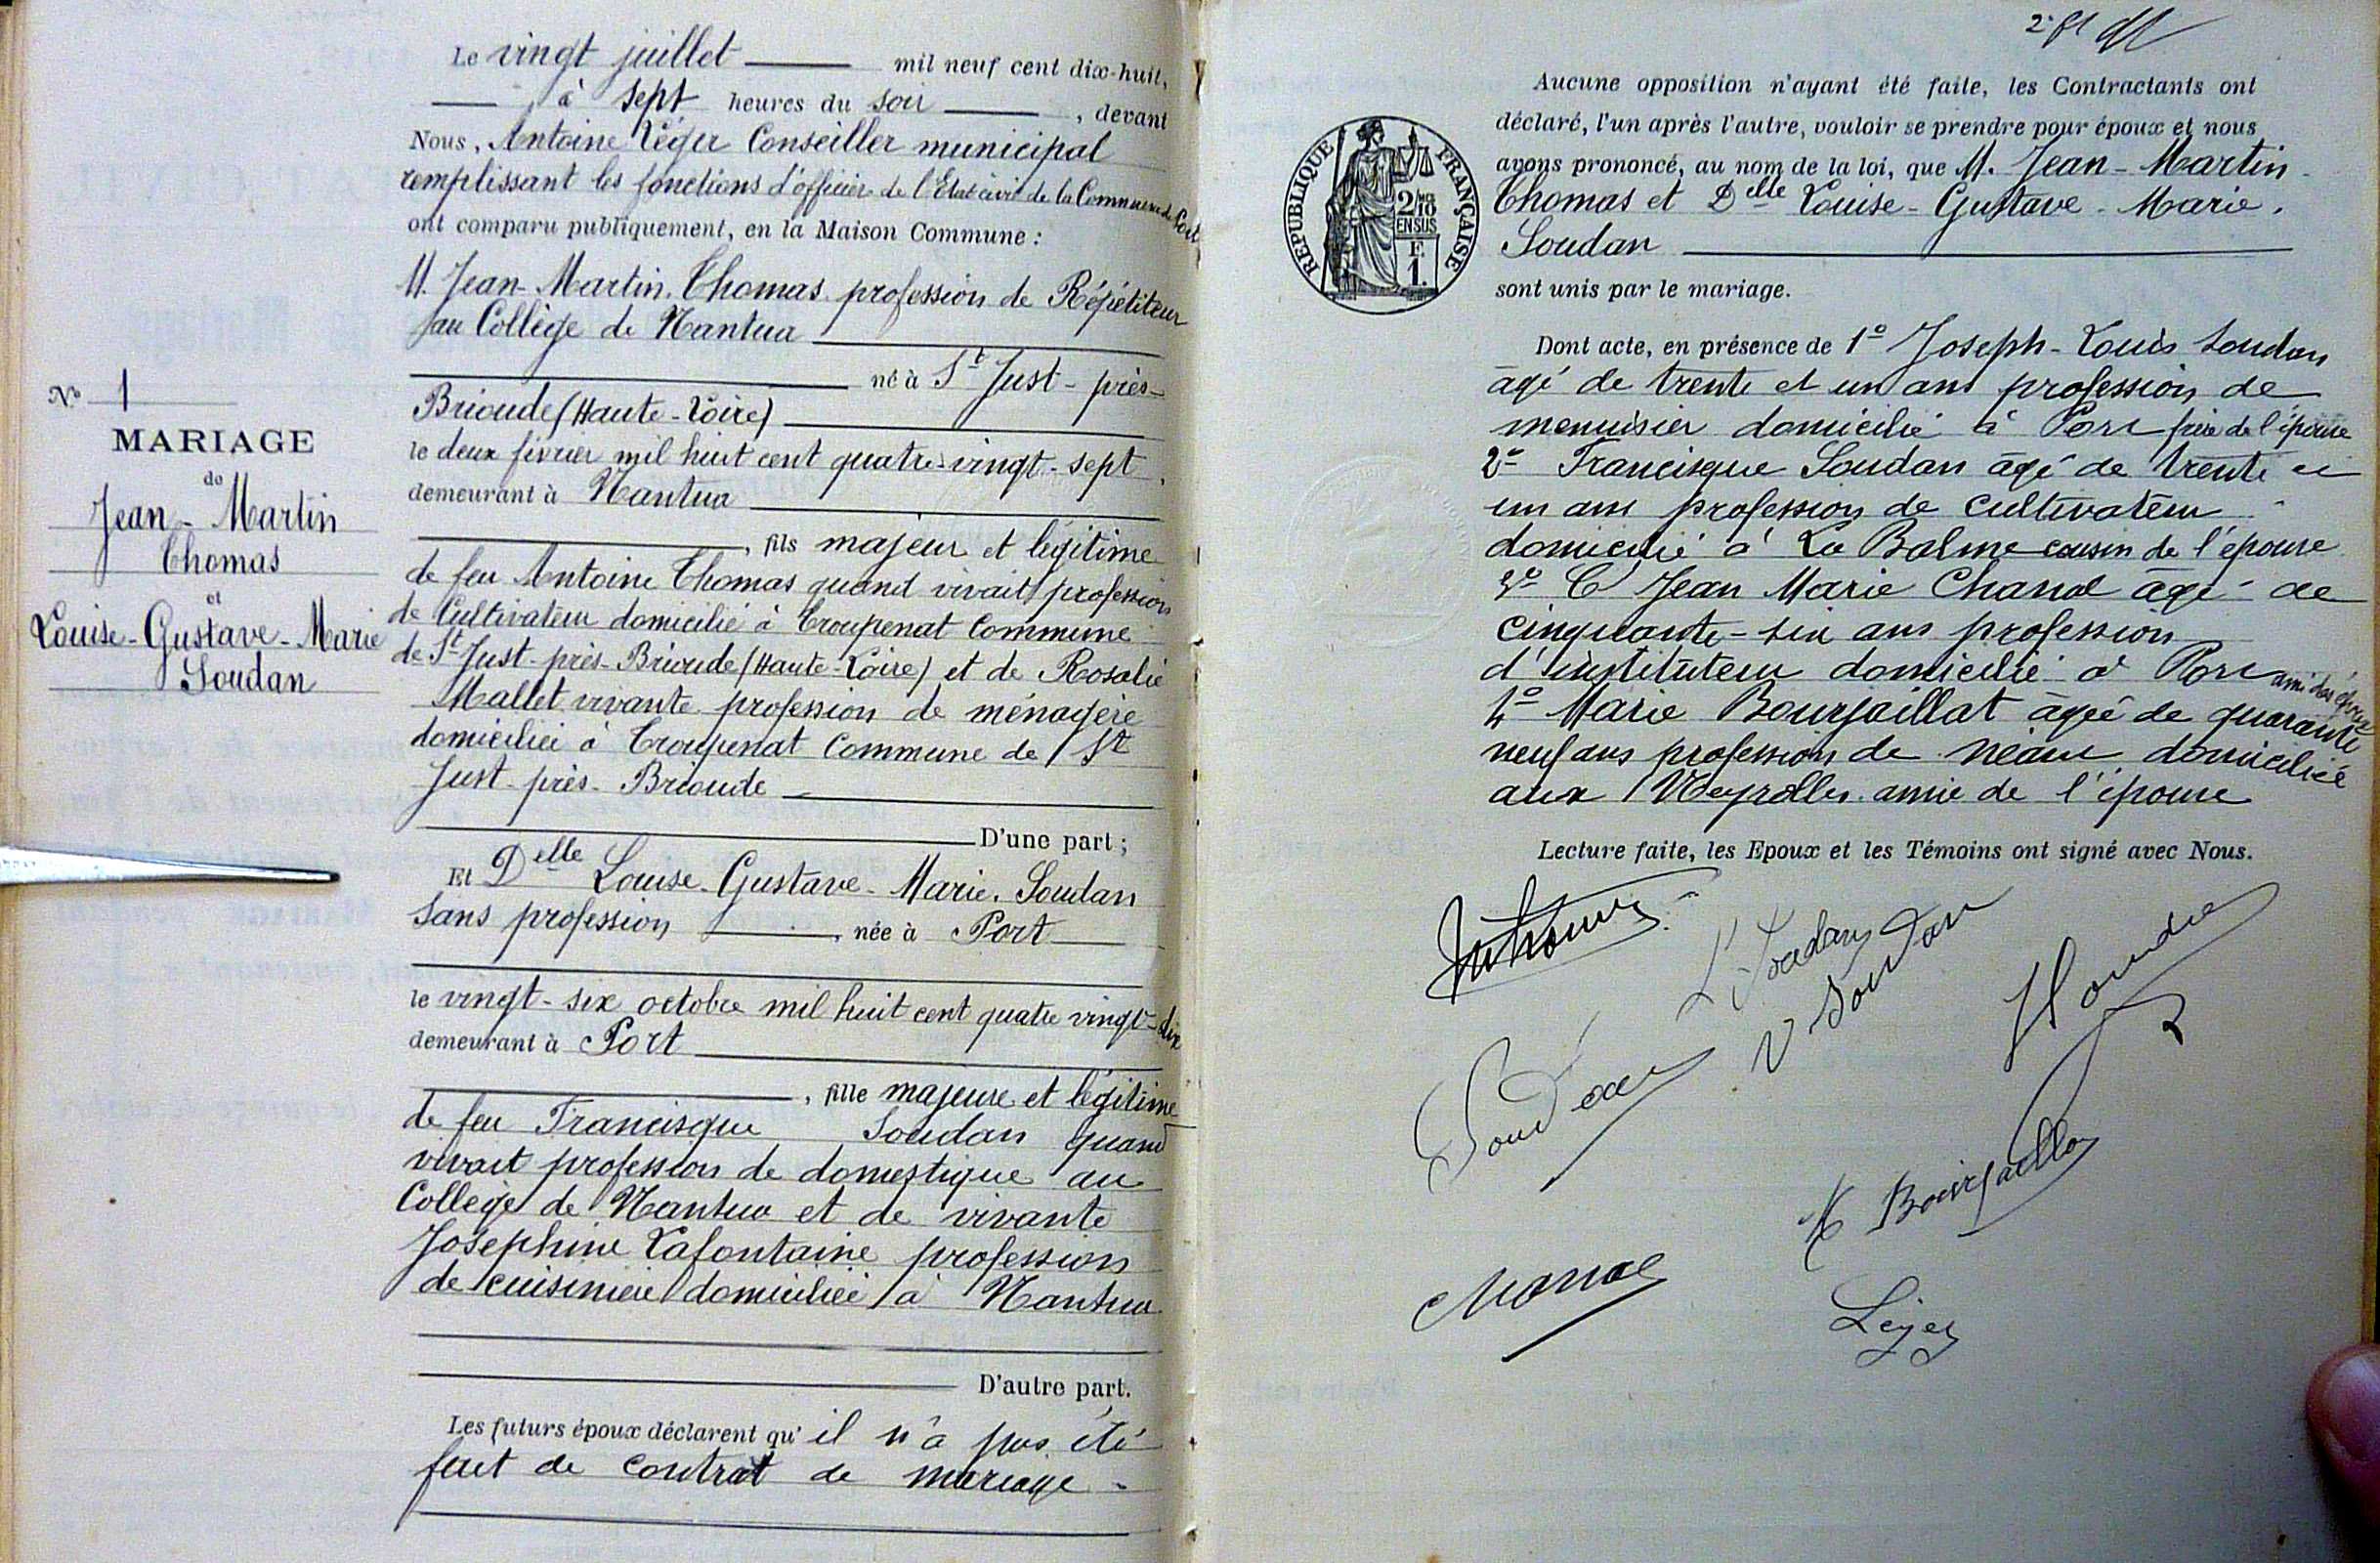 Le vingt juillet mil neuf cent dix-huit,
à sept heures du soir , devant
Nous, Antoine Léger Conseiller municipal
remplissant les fonctions d'officier de l'Etat civil de la Commune de Port
ont comparu publiquement, en la Maison Commune :
M. Jean-Martin Thomas profession de Répétiteur
au Collège de Nantua
né à St Just-près-
Brioude (Haute-Loire)
le deux février mil huit cent quatre-vingt-sept,
demeurant à Nantua
, fils majeur et légitime
de feu Antoine Thomas quand vivait profession
de Cultivateur domicilié à Troupenat Commune
de St Just-près-Brioude (Haute-Loire) et de Rosalie
Mallet vivante profession de ménagère
domiciliée à Troupenat Commune de St
Just-près-Brioude
D'une part ;
No 1
MARIAGE
de
Jean-Martin
Thomas
et
Louise-Gustave-Marie
Soudan
Et Delle Louise-Gustave-Marie Soudan
sans profession , née à Port
le vingt-six octobre mil huit cent quatre vingt-dix
demeurant à Port
, fille majeure et légitime
de feu Francisque Soudan quand
vivait profession de domestique au
Collège de Nantua et de vivante
Joséphine Lafontaine profession
de cuisinière domiciliée à Nantua
D'autre part.
Les futurs époux déclarent qu'il n'a pas été
fait de contrat de mariage -
Aucune opposition n'ayant été faite, les Contractants ont
déclaré, l'un après l'autre, vouloir se prendre pour époux et nous
avons prononcé, au nom de la loi, que M. Jean-Martin
Thomas et Delle Louise-Gustave-Marie
Soudan
sont unis par le mariage.
RÉPUBLIQUE FRANÇAISE
2/10
EN SUS
F.
1.
Dont acte, en présence de 1° Joseph-Louis Soudan
âgé de trente et un ans profession de
menuisier domicilié à Port frère de l'épouse
2° Francisque Soudan âgé de trente et
un ans profession de cultivateur
domicilié à La Balme cousin de l'épouse
3° Jean Marie Chanal âgé de
cinquante-six ans profession
d'instituteur domicilié à Port ami des époux
4° Marie Bourjaillat âgée de quarante
neuf ans profession de néant domiciliée
aux Neyrolles amie de l'épouse
Lecture faite, les Epoux et les Témoins ont signé avec Nous.
L Soudan
Soudan
Soudan
M Bourjaillat
Chanal
Léger